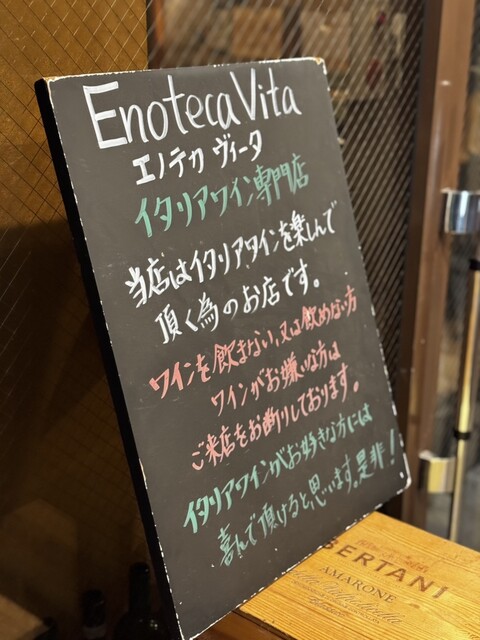 Enoteca Vita
エノテカ ヴィータ
イタリアワイン専門店
当店はイタリアワインを楽しんで
頂く為のお店です。
ワインを飲まない、又は飲めない方
ワインがお嫌いな方は
ご来店をお断りしております。
イタリアワインがお好きな方には
喜んで頂けると思います。是非!
BERTANI
AMARONE